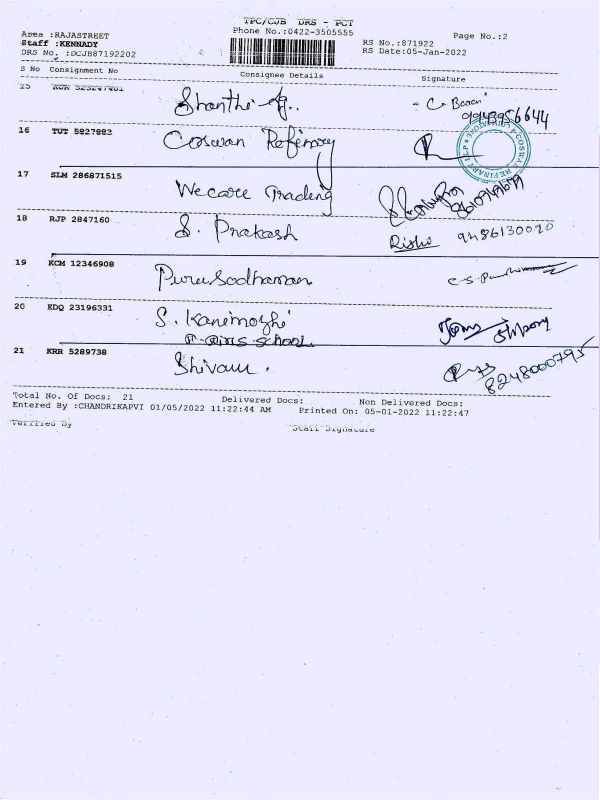 TPC/CJB DRS - PCT
Area :RAJASTREET Phone No.:0422-3505555 Page No.:2
Staff :KENNADY RS No.:871922
DRS No. :DCJB87192202 RS Date:05-Jan-2022
S No Consignment No Consignee Details Signature
15 Shanthi - C. Barani
16 TUT 5827883 Coswan Refinary
17 SLM 286871515 Wecare Trading
18 RJP 2847160 S. Prakash 9486130020
19 KCM 12346908 Purusodhaman
20 EDQ 23196331 S. Kanimozhi
Girls school
21 KRR 5289738 Shivam . 8248000795
Total No. Of Docs: 21 Delivered Docs: Non Delivered Docs:
Entered By :CHANDRIKAPVI 01/05/2022 11:22:44 AM Printed On: 05-01-2022 11:22:47
Verified By Staff Signature